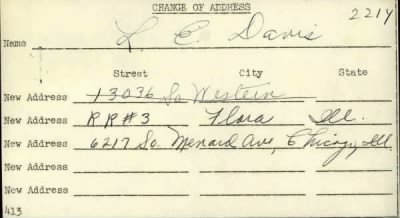 CHANGE OF ADDRESS 2214
Name L. E. Davis
Street City State
New Address 13036 So Western
New Address RR#3 Flora Ill.
New Address 6217 So. Menard Ave, Chicago, Ill.
New Address
New Address
413